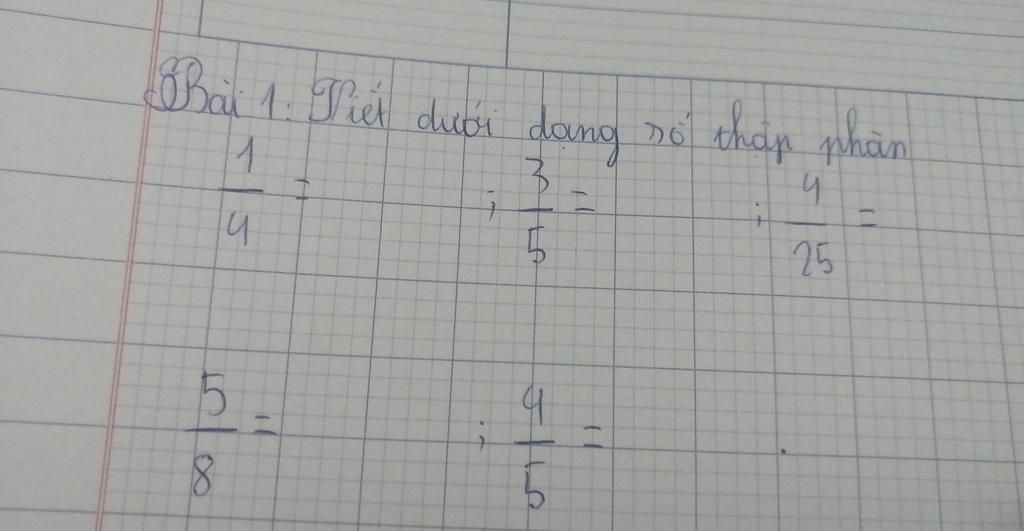 Bài 1: Viết dưới dạng số thập phân
1/4 = ; 3/5 = ; 4/25 =
5/8 = ; 4/5 = .